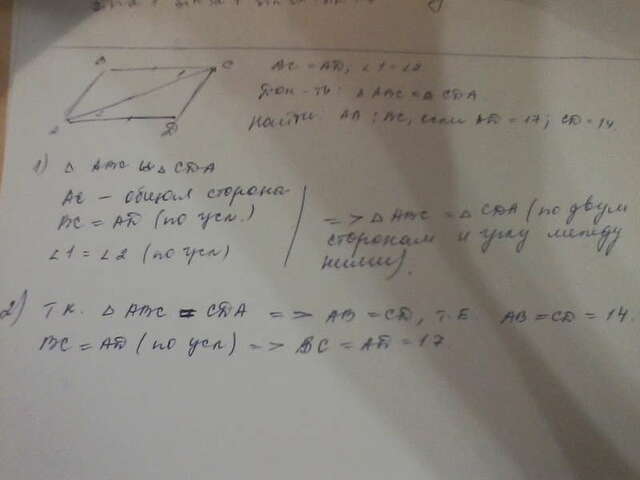 C
D
BC = AD, ∠1 = ∠2
Док-ть: △ ABC = △ CDA
Найти: AB; BC, если AD = 17; CD = 14
1) △ ABC и △ CDA
AC – общая сторона
BC = AD (по усл.)
∠1 = ∠2 (по усл)
=> △ ABC = △ CDA (по двум
сторонам и углу между
ними).
2) Т.к. △ ABC = CDA => AB = CD, т.е. AB = CD = 14.
BC = AD (по усл) => BC = AD = 17